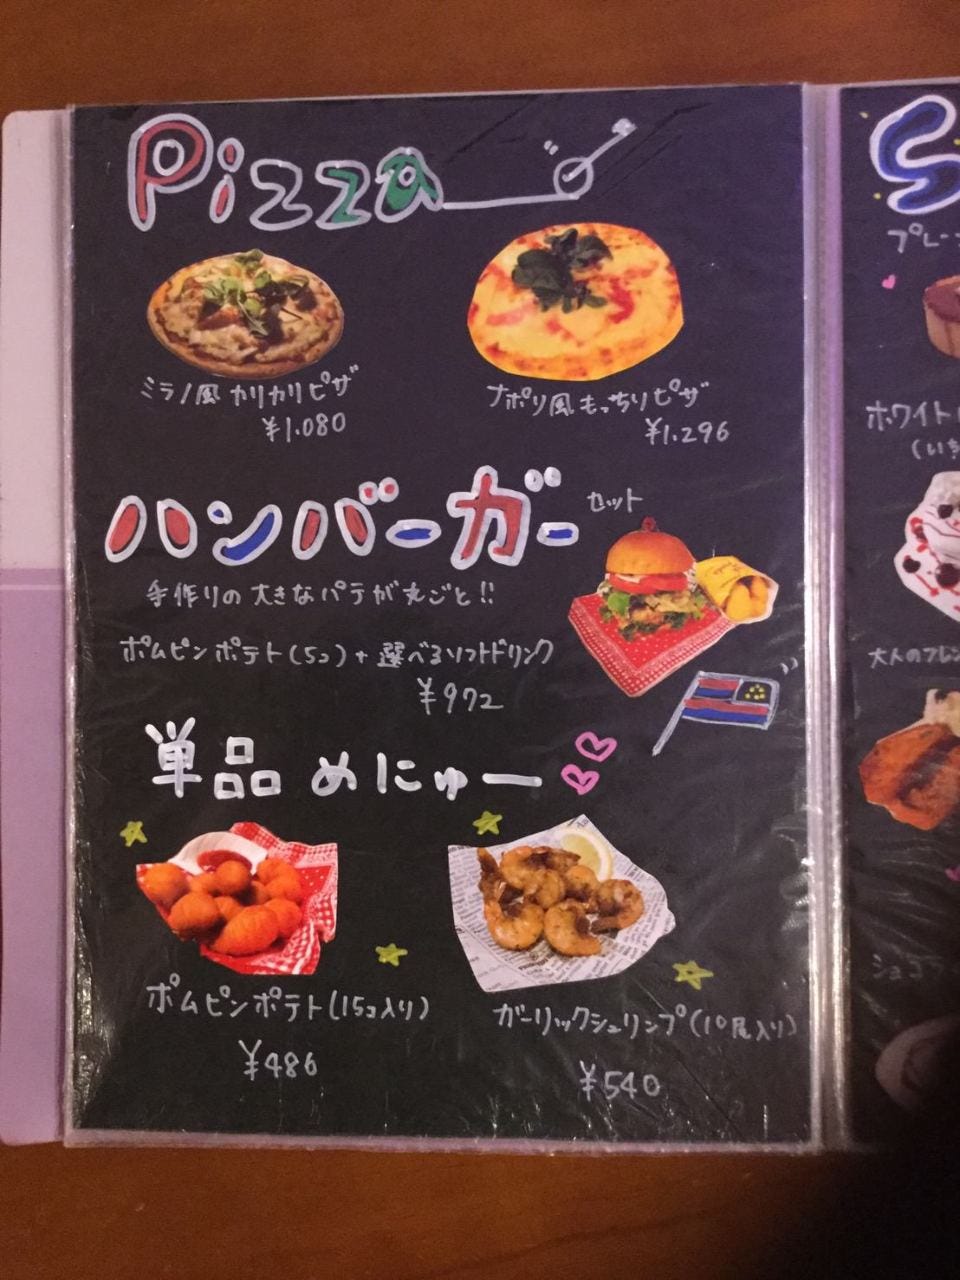 Pizza
ミラノ風 カリカリピザ
¥1.080
ナポリ風 もっちりピザ
¥1.296
ハンバーガー セット
手作りの 大きなパテが 丸ごと!!
ポムピン ポテト(5コ)+選べるソフトドリンク
¥972
単品 めにゅー
ポムピンポテト(15コ入り)
¥486
ガーリックシュリンプ(10尾入り)
¥540
S
プレーン
ホワイト
(いち
大人のフレン
ショコラ